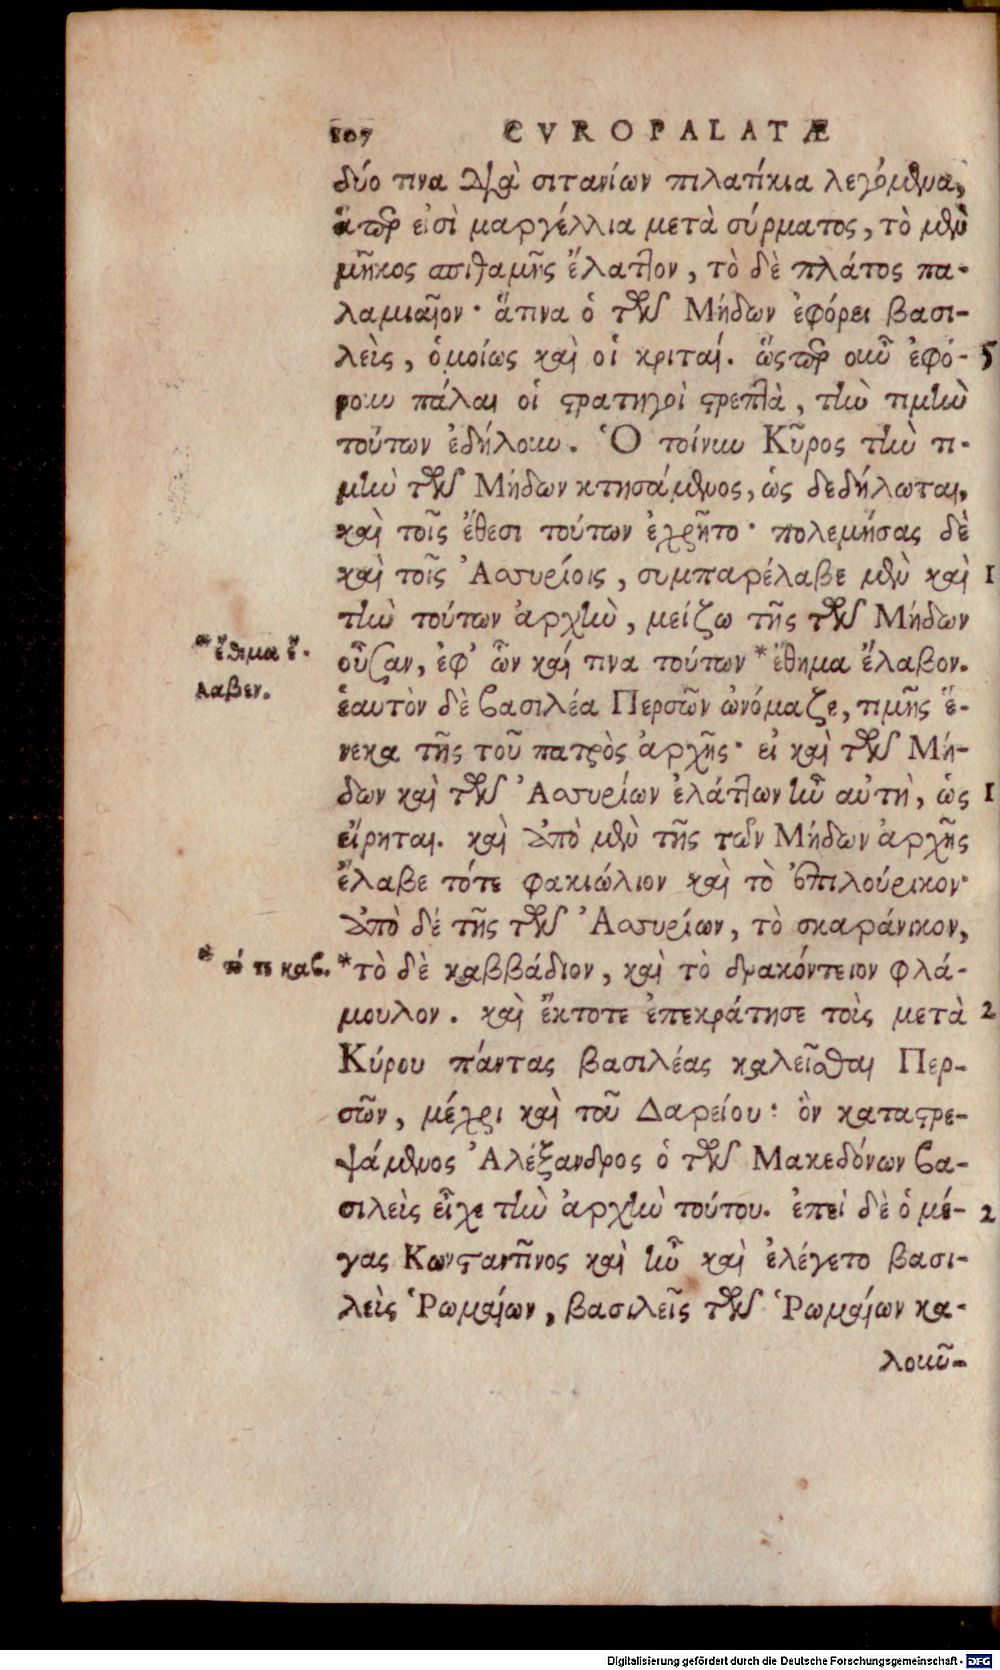 107 CVROPALATÆ
δύο τινα διὰ σιτανίων πιλατίκια λεγόμενα,
ἅπερ εἰσὶ μαργέλλια μετὰ σύρματος, τὸ μὲν
μῆκος σπιθαμῆς ἔλαττον, τὸ δὲ πλάτος πα-
λαμιαῖον· ἅτινα ὁ τῶν Μήδων ἐφόρει βασι-
λεὺς, ὁμοίως καὶ οἱ κριταί. ὥσπερ οὖν ἐφό- 5
ρουν πάλαι οἱ στρατηγοὶ στρεπτὰ, τὴν τιμὴν
τούτων ἐδήλουν. Ὁ τοίνυν Κῦρος τὴν τι-
μὴν τῶν Μήδων κτησάμενος, ὡς δεδήλωται,
καὶ τοῖς ἔθεσι τούτων ἐχρῆτο· πολεμήσας δὲ
καὶ τοῖς Ἀσσυρίοις, συμπαρέλαβε μὲν καὶ 1
τὴν τούτων ἀρχὴν, μείζω τῆς τῶν Μήδων
* ἔθιμα ἔ- οὖσαν, ἐφ' ὧν καί τινα τούτων * ἔθημα ἔλαβον.
λαβεν. ἑαυτὸν δὲ βασιλέα Περσῶν ὠνόμαζε, τιμῆς ἕ-
νεκα τῆς τοῦ πατρὸς ἀρχῆς· εἰ καὶ τῶν Μή-
δων καὶ τῶν Ἀσσυρίων ἐλάττων ἦν αὐτὴ, ὡς 1
εἴρηται. καὶ ἀπὸ μὲν τῆς τῶν Μήδων ἀρχῆς
ἔλαβε τότε φακιώλιον καὶ τὸ ἐπιλούρικον·
ἀπὸ δὲ τῆς τῶν Ἀσσυρίων, τὸ σκαράνικον,
* τό τε καβ. * τὸ δὲ καββάδιον, καὶ τὸ δρακόντειον φλά-
μουλον. καὶ ἔκτοτε ἐπεκράτησε τοὺς μετὰ 2
Κύρου πάντας βασιλέας καλεῖσθαι Περ-
σῶν, μέχρι καὶ τοῦ Δαρείου: ὃν καταστρε-
ψάμενος Ἀλέξανδρος ὁ τῶν Μακεδόνων βα-
σιλεὺς εἶχε τὴν ἀρχὴν τούτου. ἐπεὶ δὲ ὁ μέ- 2
γας Κωνσταντῖνος καὶ ἦν καὶ ἐλέγετο βασι-
λεὺς Ῥωμαίων, βασιλεῖς τῶν Ῥωμαίων κα-
λοῦν-
Digitalisierung gefördert durch die Deutsche Forschungsgemeinschaft - DFG